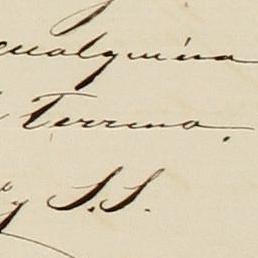 cualquiera
Terreno.
y S.S.